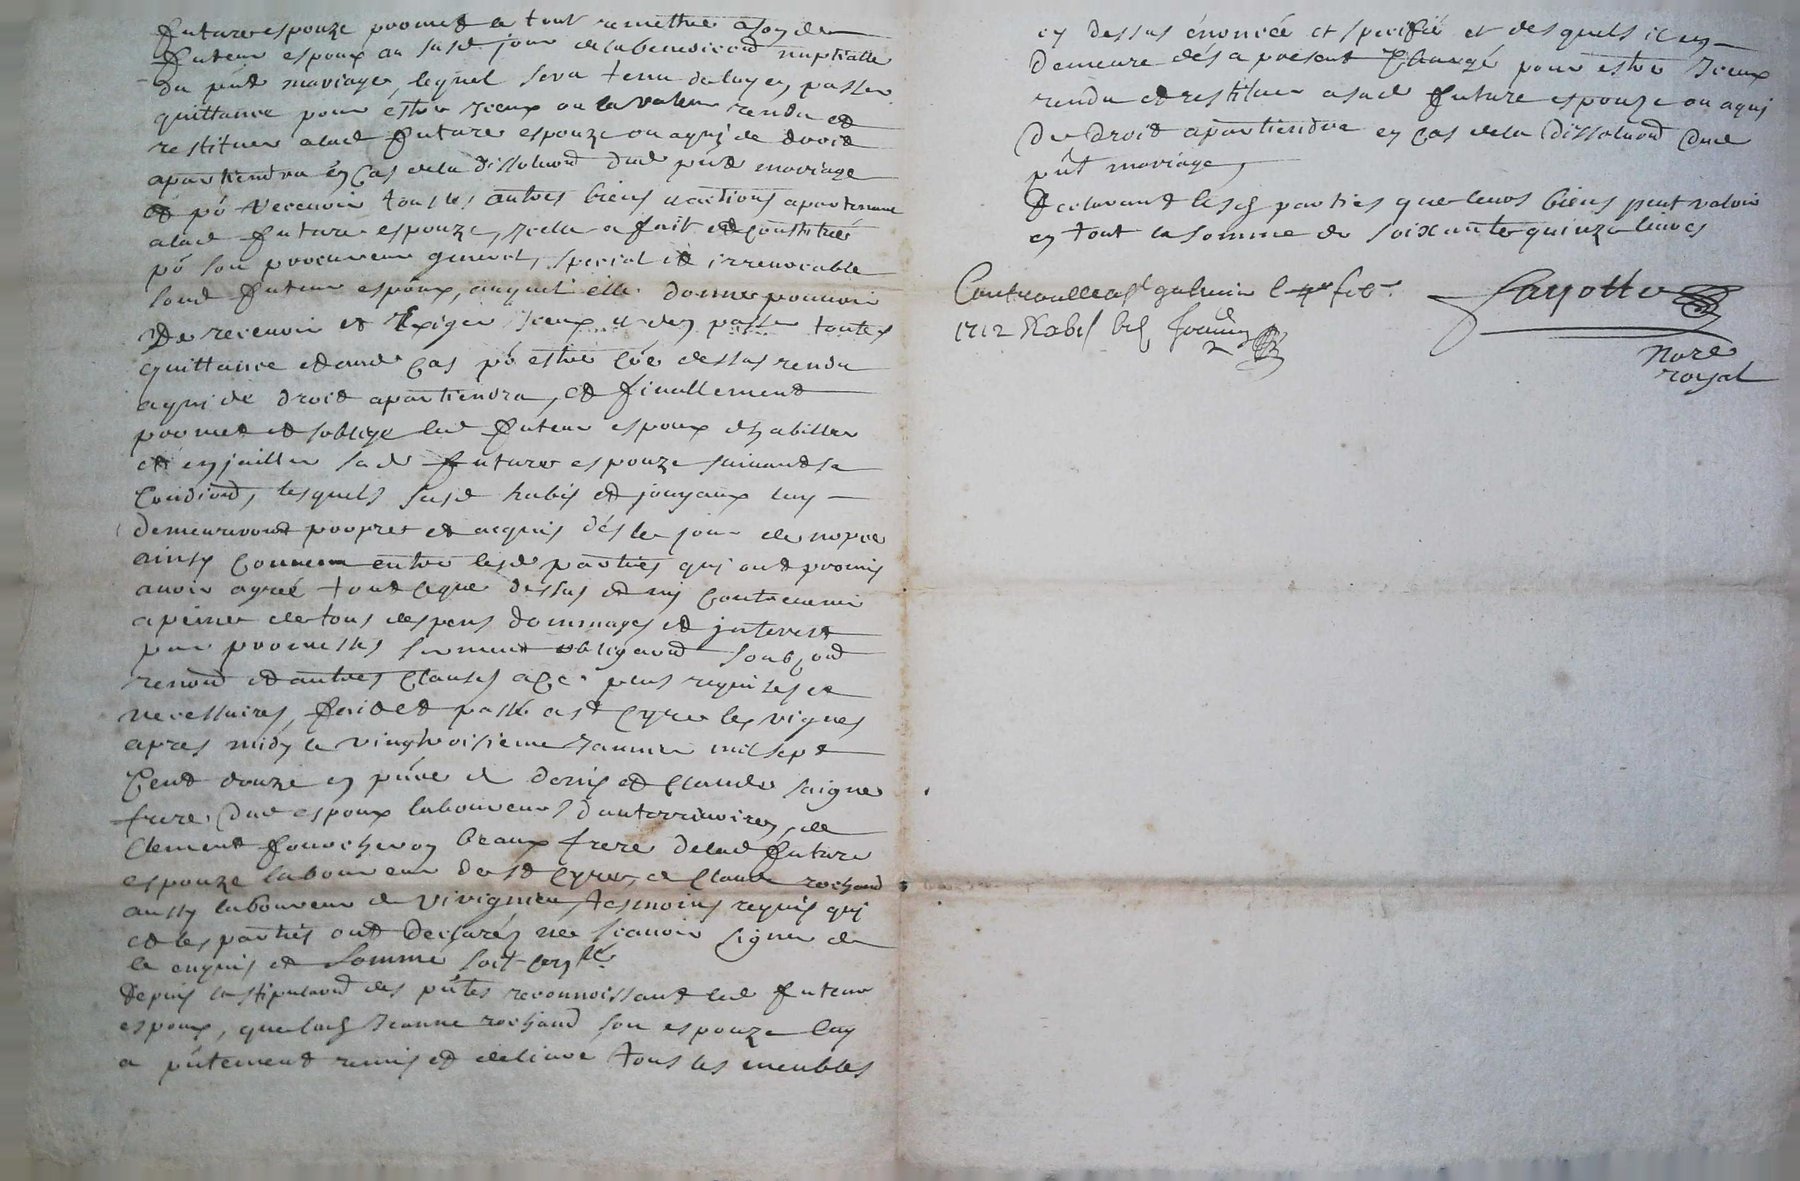 future espouze promet de tout remettre a son d
futeur espoux au susd jour de la benediction nuptialle
du pñt mariage, lequel sera tenu de luy en passer
quittance pour estre iceux ou la valeur rendu et
restituer a lad future espouze ou a quj de droit
apartiendra en cas de la dissolu͠on dud pñt mariage
et pō recevoir tous les autres biens et actions apartenant
a lad future espouze, icelle a fait et constitué
pō son procureur general, special et irrevocable
sond futeur espoux, auquel elle donne pouvoir
de recevoir et exiger iceux et d'en passer toutes
quittance et aud cas pō estre cōe dessus rendu
a quj de droit apartiendra, et finallement
promet et s'oblige led futeur espoux d'habiller
et enjoailler sad future espouze suivant sa
condi͠on, lesquels susd habis et jouyaux luy
demeureront propres et acquis dés le jour de nopce
ainsy convenu entre lesd parties quj ont promis
avoir agréé tout ce que dessus et ny contrevenir
a peine de tous despens dommages et jnterest
par promesses serment obliga͠on soubz͠on
renon͠on et autres clauses a ce plus requises et
necessaires, fait et passé a st Cyre les vignes
apres midy le vingtroisieme Janvier mil sept
cent douze en pñce de Denis et Claude Saigne
frere dud espoux laboureurs d'auterrivoire, de
Clement fourcheron beaux frere de lad future
espouze laboureur de st Cyre, et Claude rochand
aussy laboureur de Vivignieu, tesmoins requis quj
et les parties ont declarés ne scavoir signer de
ce enquis et sommé soit con͠llé
Depuis la stipula͠on des pñtes reconnoissant led futeur
espoux, que lad Jeanne rochand son espouze luy
a pñtement remis et delivré tous les meubles
cy dessus énoncée et specifié et desquels il en
demeure dés a present chargé pour estre iceux
rendu et restituer a sad future espouze ou a quj
de droit apartiendra en cas de la dissolu͠on dud
pñt mariage,
Declarant lesd parties que leurs biens peut valoir
en tout la somme de soixante quinze livres
Controulle a st galmier le 4er feb.
1712 Rabes
Nore
royal